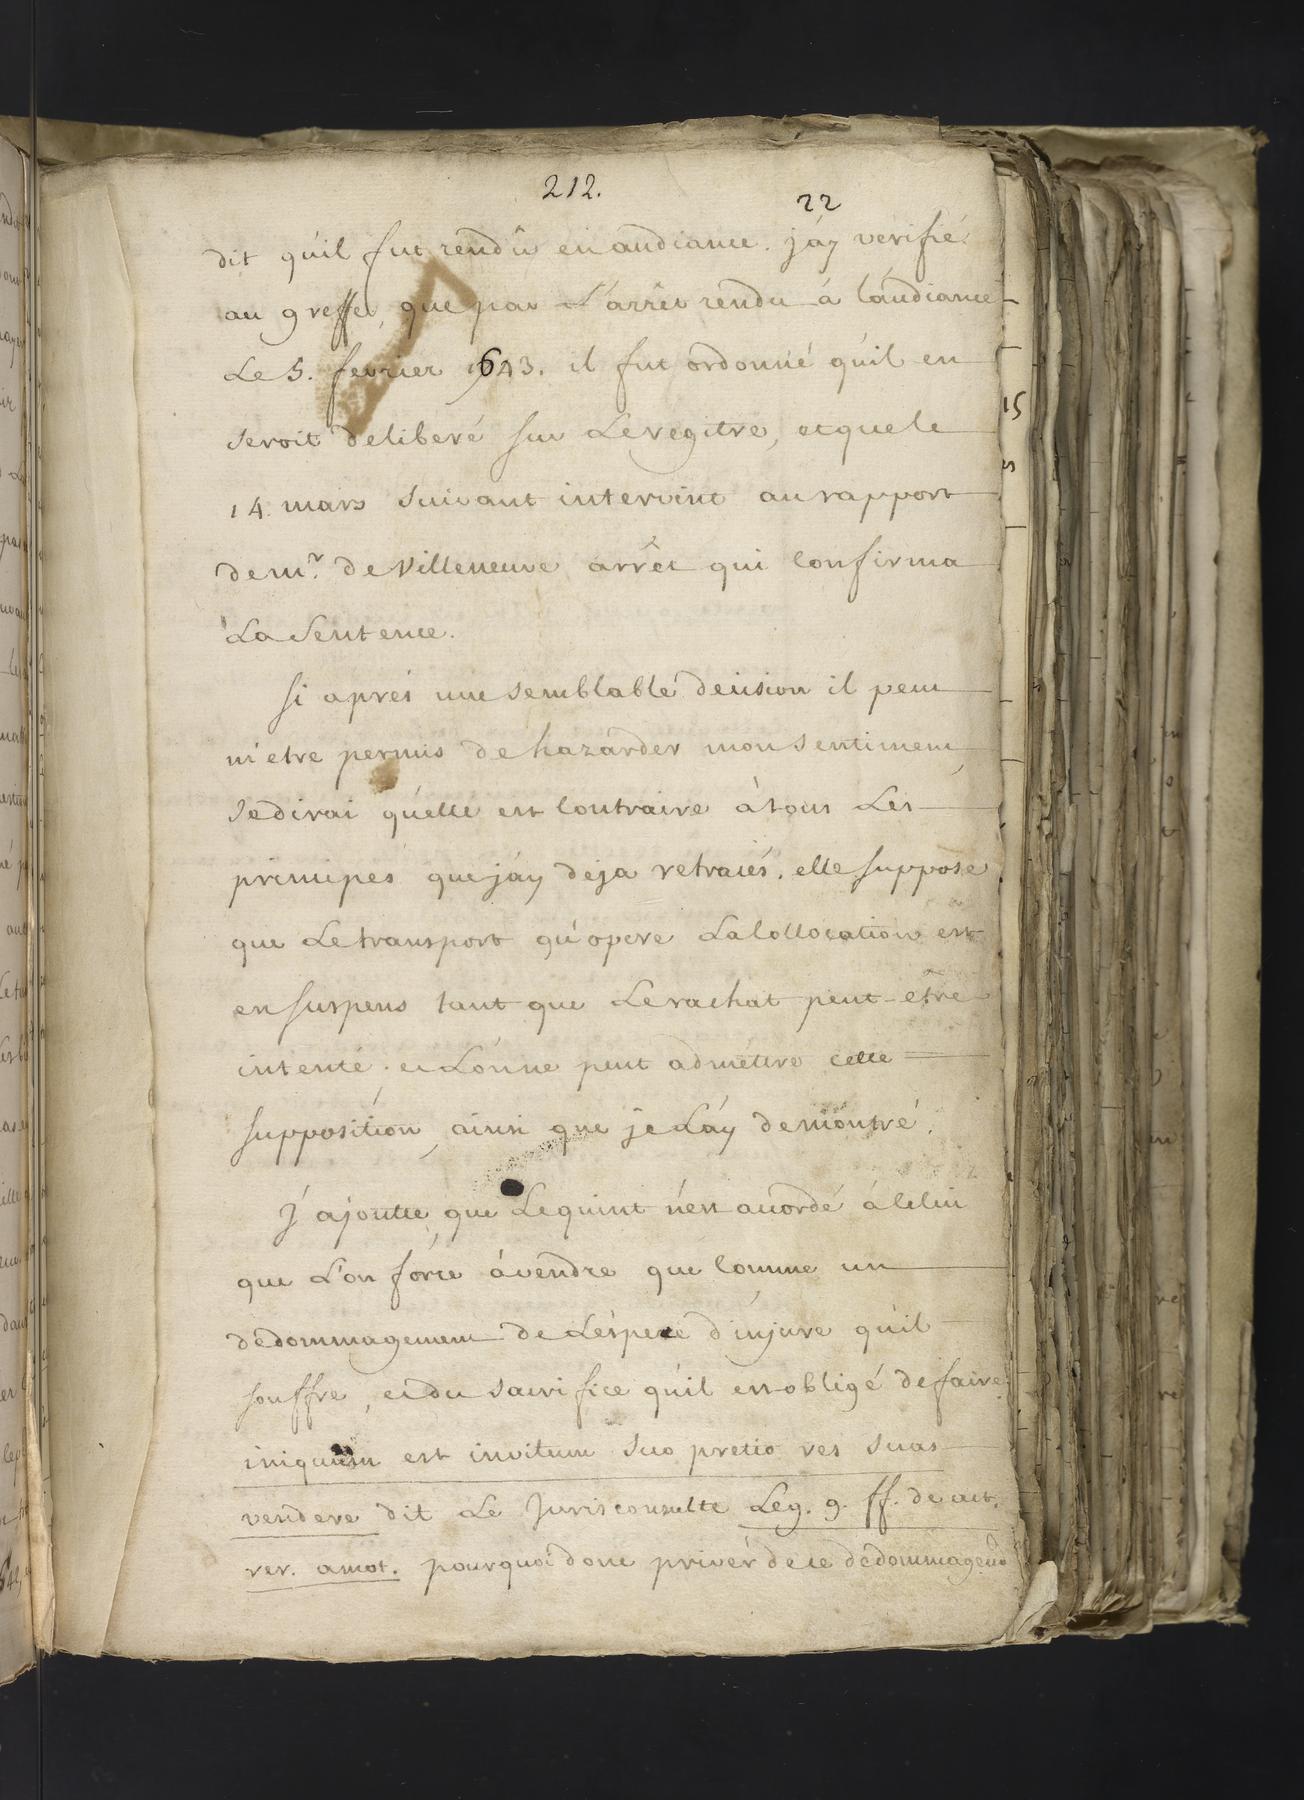 212.
22
dit qu'il fut rendû en audiance. j'ay verifié
au greffe, que par L'arrêt rendu á l'audiance
Le 5. fevrier 1643. il fut ordonné qu'il en
seroit deliberé sur Le regitre, et que le
14. mars suivant intervint au rapport
de mr. de Villeneuve arrêt qui confirma
La Sentence.
Si aprés une semblable decision il peut
m'etre permis de hazarder mon sentiment,
Je dirai qu'elle est contraire á tous Les
principes que j'ay deja retracés. elle suppose
que Le transport qu'opere La collocation est
en suspens tant que Le rachat peut-être
intenté; et L'on ne peut admettre cette
supposition, ainsi que je L'ay demontré.
J'ajoutte, que Le quint n'est accordé á celui
que L'on force á vendre que comme un
dédommagement de L'espece d'injure qu'il
souffre, et du sacrifice qu'il est obligé de faire
iniquum est invitum suo pretio res suas
vendere dit Le Jurisconsulte Leg. 9. ff. de act.
rer. amot. pourquoi donc priver de ce dédommagemt
15